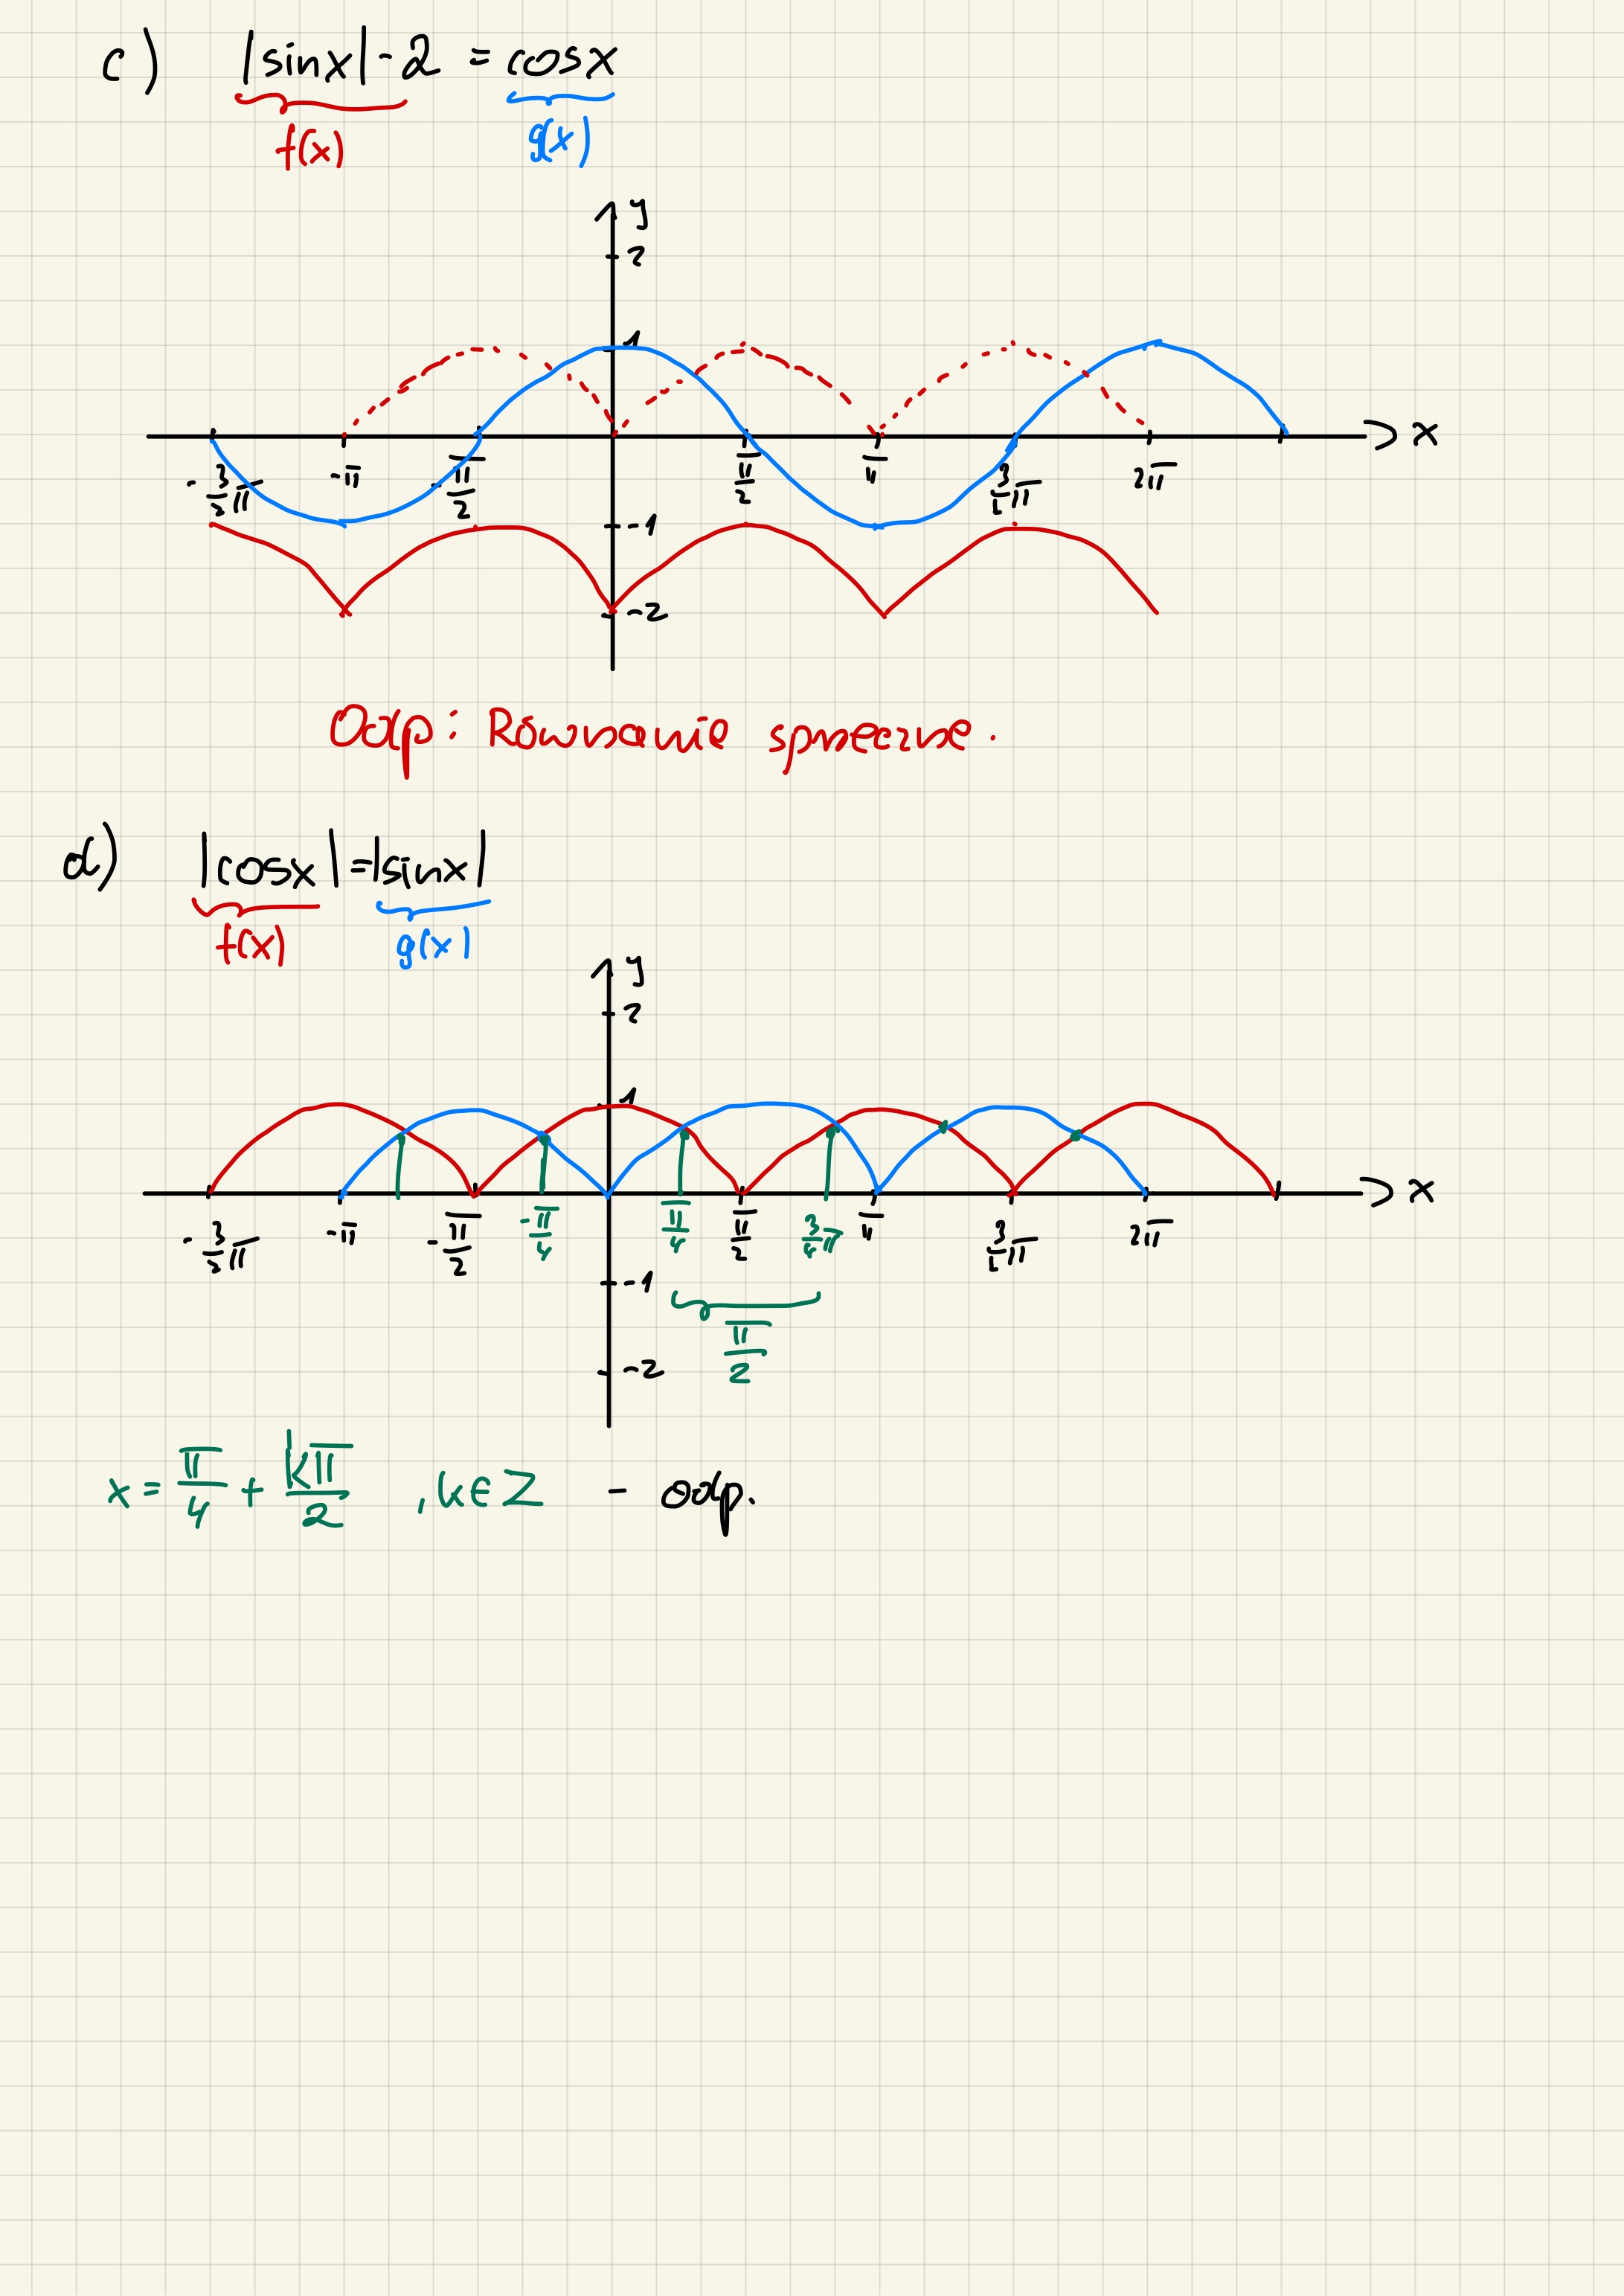 c) |sinx|-2 = cosx
f(x) g(x)
y
2
1
-3/2π -π -π/2 π/2 π 3/2π 2π x
-1
-2
Odp: Równanie sprzeczne.
d) |cosx|=|sinx|
f(x) g(x)
y
2
1
-3/2π -π -π/2 -π/4 π/4 π/2 3/4π π 3/2π 2π x
-1
π/2
-2
x = π/4 + kπ/2 , k∈Z - odp.